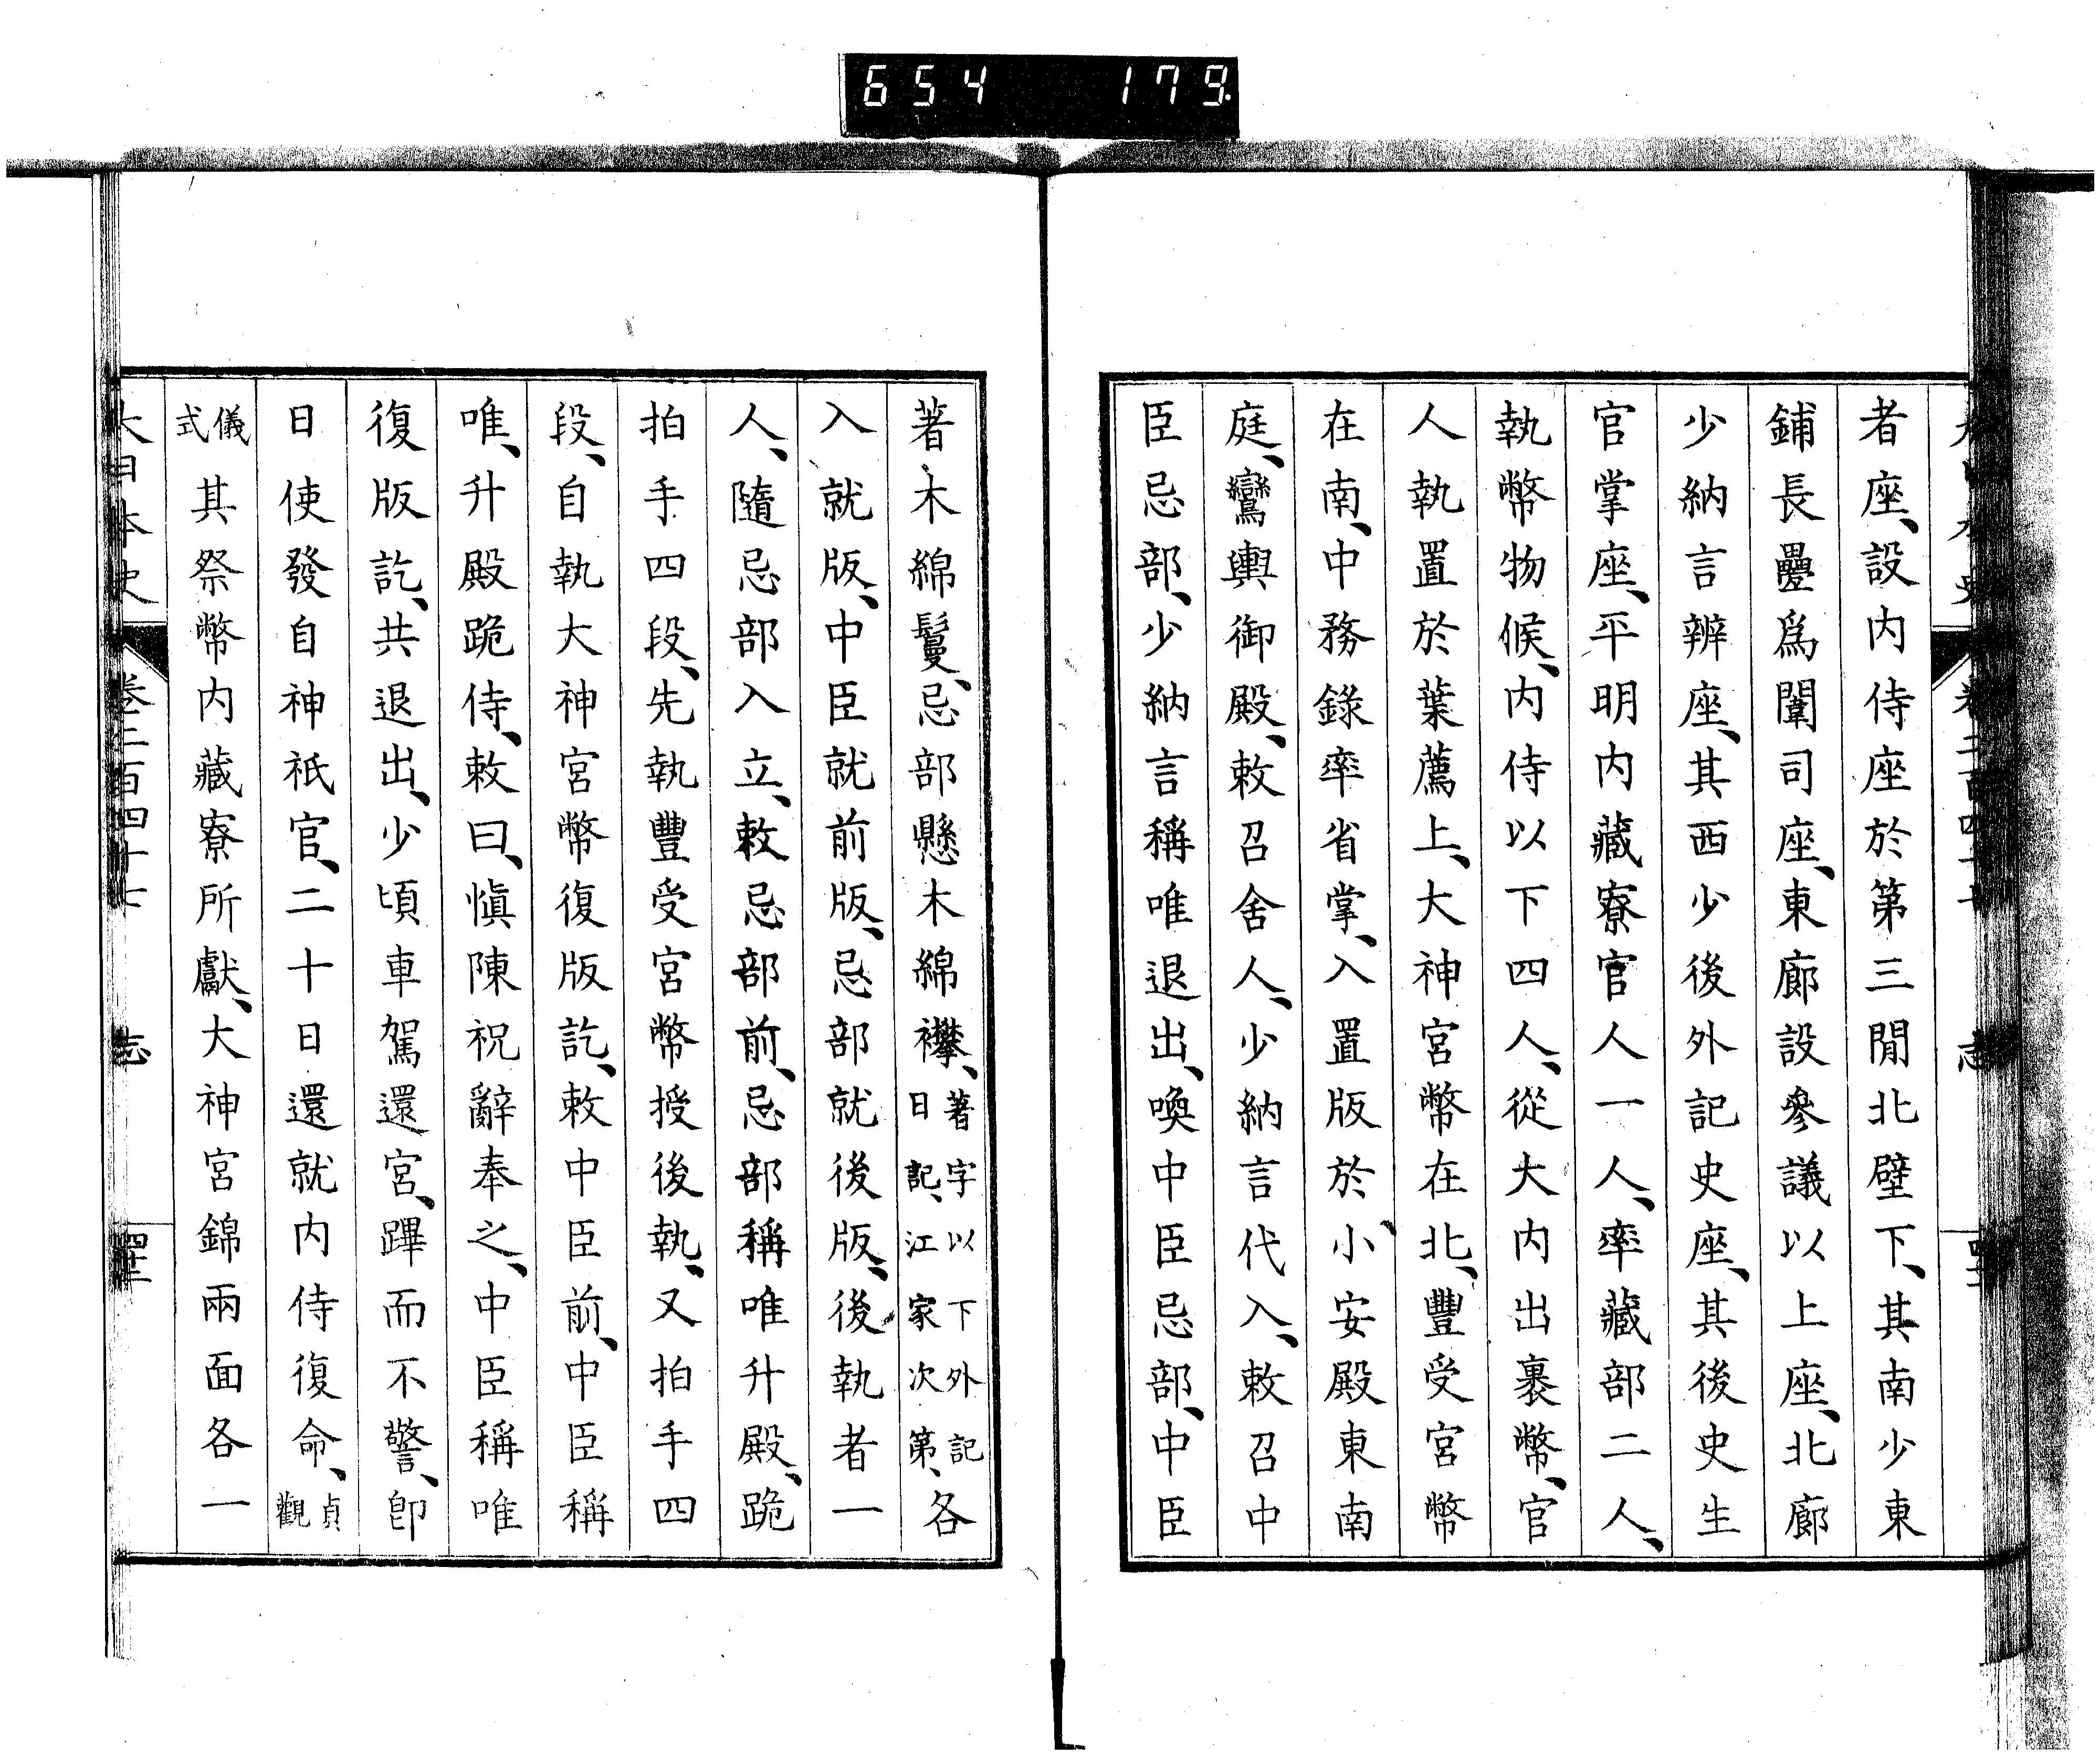 654 179
者座、設内侍座於第三間北壁下、其南少東
鋪長疊爲闈司座、東廊設參議以上座、北廊
少納言辨座、其西少後外記史座、其後史生
官掌座、平明内藏寮官人一人、率藏部二人、
執幣物候、内侍以下四人、從大内出裹幣、官
人執置於葉薦上、大神宮幣在北、豐受宮幣
在南、中務錄率省掌、入置版於小安殿東南
庭、鸞輿御殿、敕召舍人、少納言代入、敕召中
臣忌部、少納言稱唯退出、喚中臣忌部、中臣
著木綿鬘、忌部懸木綿襷、著字以下外記日記、江家次第、各
入就版、中臣就前版、忌部就後版、後執者一
人、隨忌部入立、敕忌部前、忌部稱唯升殿、跪
拍手四段、先執豐受宮幣授後執、又拍手四
段、自執大神宮幣復版訖、敕中臣前、中臣稱
唯、升殿跪侍、敕曰、愼陳祝辭奉之、中臣稱唯
復版訖、共退出、少頃車駕還宮、蹕而不警、卽
日使發自神祇官、二十日還就内侍復命、貞觀
儀式其祭幣内藏寮所獻、大神宮錦兩面各一
大日本史 卷二百四十七 志